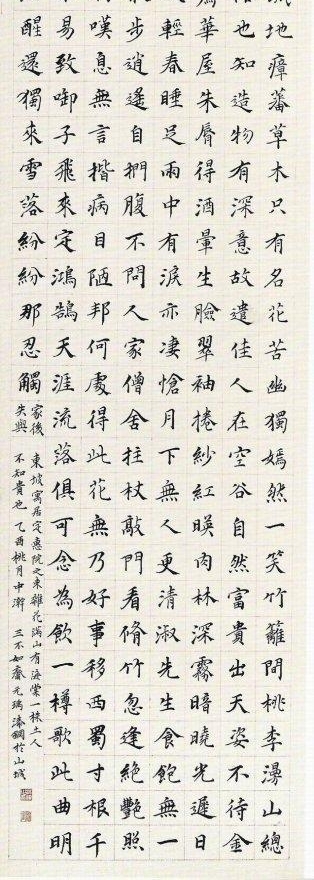 城地瘴蕃草木只有名花苦幽獨嫣然一笑竹籬間桃李漫山總
也知造物有深意故遣佳人在空谷自然富貴出天姿不待金
華屋朱脣得酒暈生臉翠袖捲紗紅暎肉林深霧暗曉光遲日
輕春睡足雨中有淚亦凄愴月下無人更清淑先生食飽無一
步逍遙自捫腹不問人家僧舍拄杖敲門看脩竹忽逢絕艷照
嘆息無言揩病目陋邦何處得此花無乃好事移西蜀寸根千
易致啣子飛來定鴻鵠天涯流落俱可念為飲一樽歌此曲明
醒還獨來雪落紛紛那忍觸
家後
失與
東坡寓居定惠院之東雜花滿山有海棠一株土人
不知貴也 乙酉桃月中澣 三不如齋元瑞 於山城